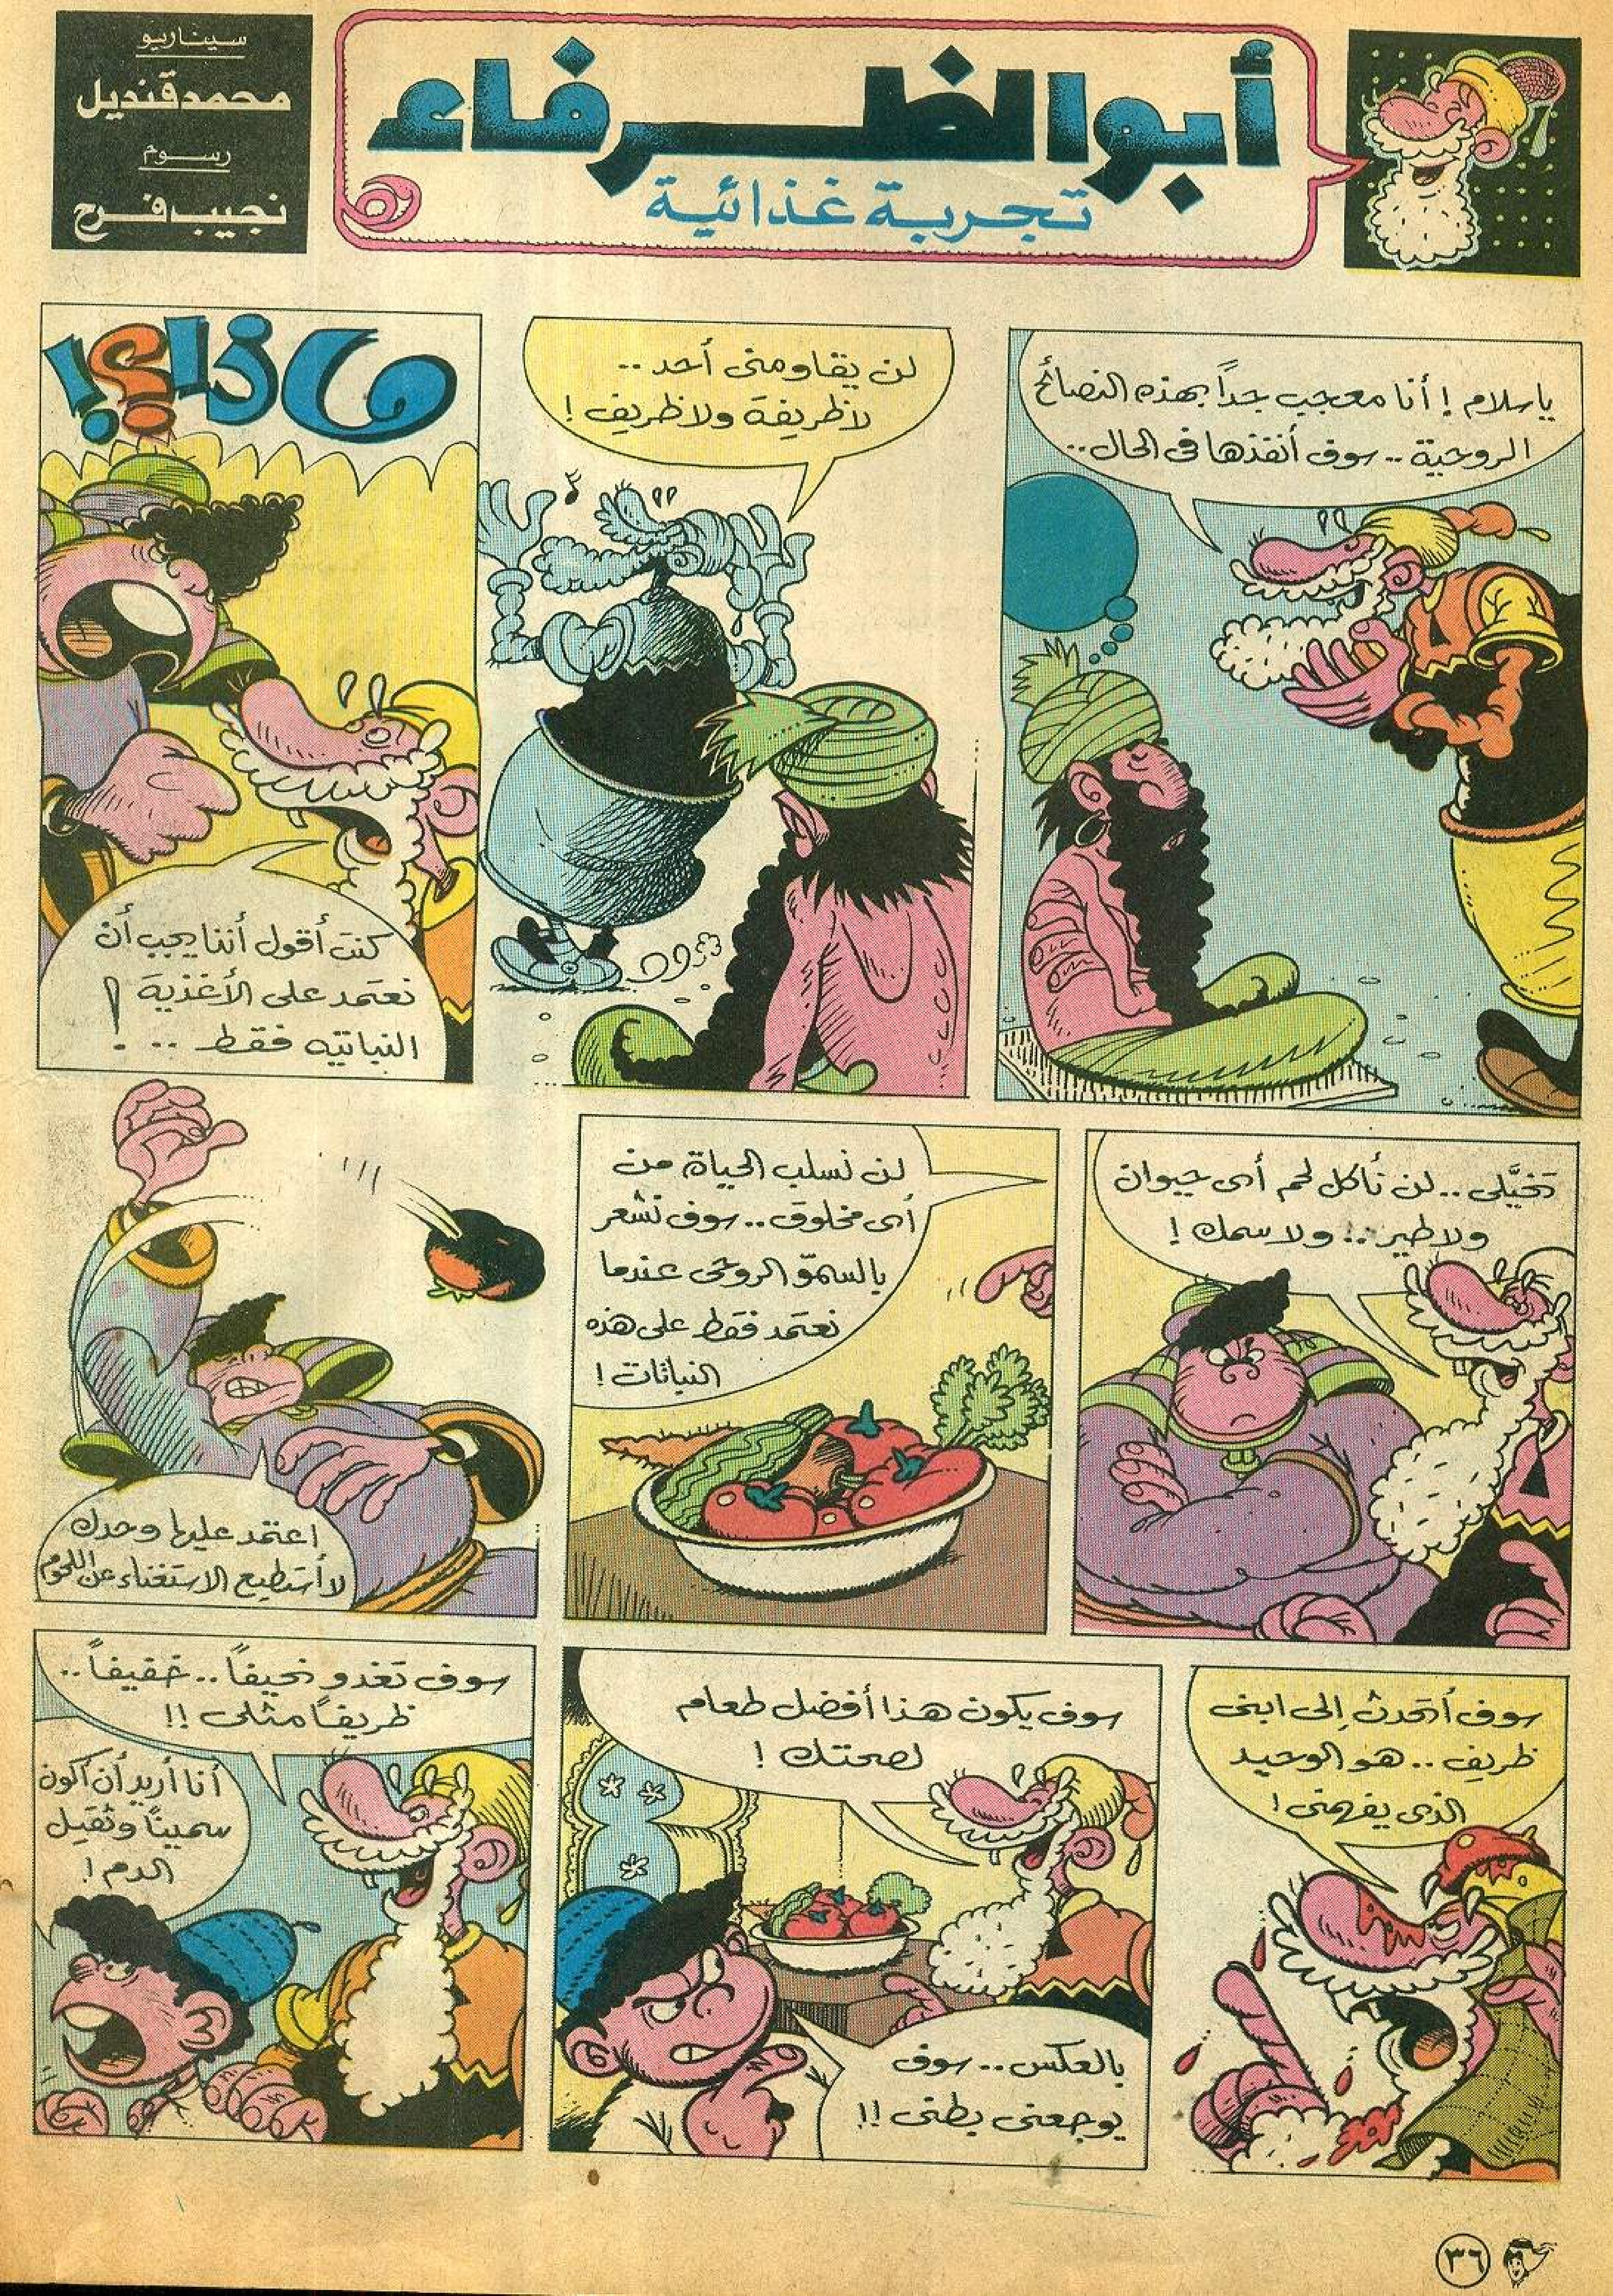 أبوالظرفاء
تجربة غذائية
سيناريو
محمد قنديل
رسوم
نجيب فرح
ياسلام! أنا معجب جداً بهذه النصائح
الروحية.. سوف أنفذها فى الحال..
لن يقاومنى أحد..
لا ظريفة ولا ظريف!
ماذا؟!
كنت أقول أننا يجب أن
نعتمد على الأغذية
النباتيه فقط..!
تخيَّلى.. لن نأكل لحم أى حيوان
ولا طير.. ولا سمك!
لن نسلب الحياة من
أى مخلوق.. سوف نشعر
بالسموّ الروحى عندما
نعتمد فقط على هذه
النباتات!
اعتمد عليها وحدك
لا أستطيع الاستغناء عن اللحوم
سوف أتحدث إلى ابنى
ظريف.. هو الوحيد
الذى يفهمنى!
سوف يكون هذا أفضل طعام
لصحتك!
بالعكس.. سوف
يوجعنى بطنى!!
سوف تغدو نحيفاً.. خفيفاً..
ظريفاً مثلى!!
أنا أريد أن أكون
سميناً وثقيل
الدم!
٣٦